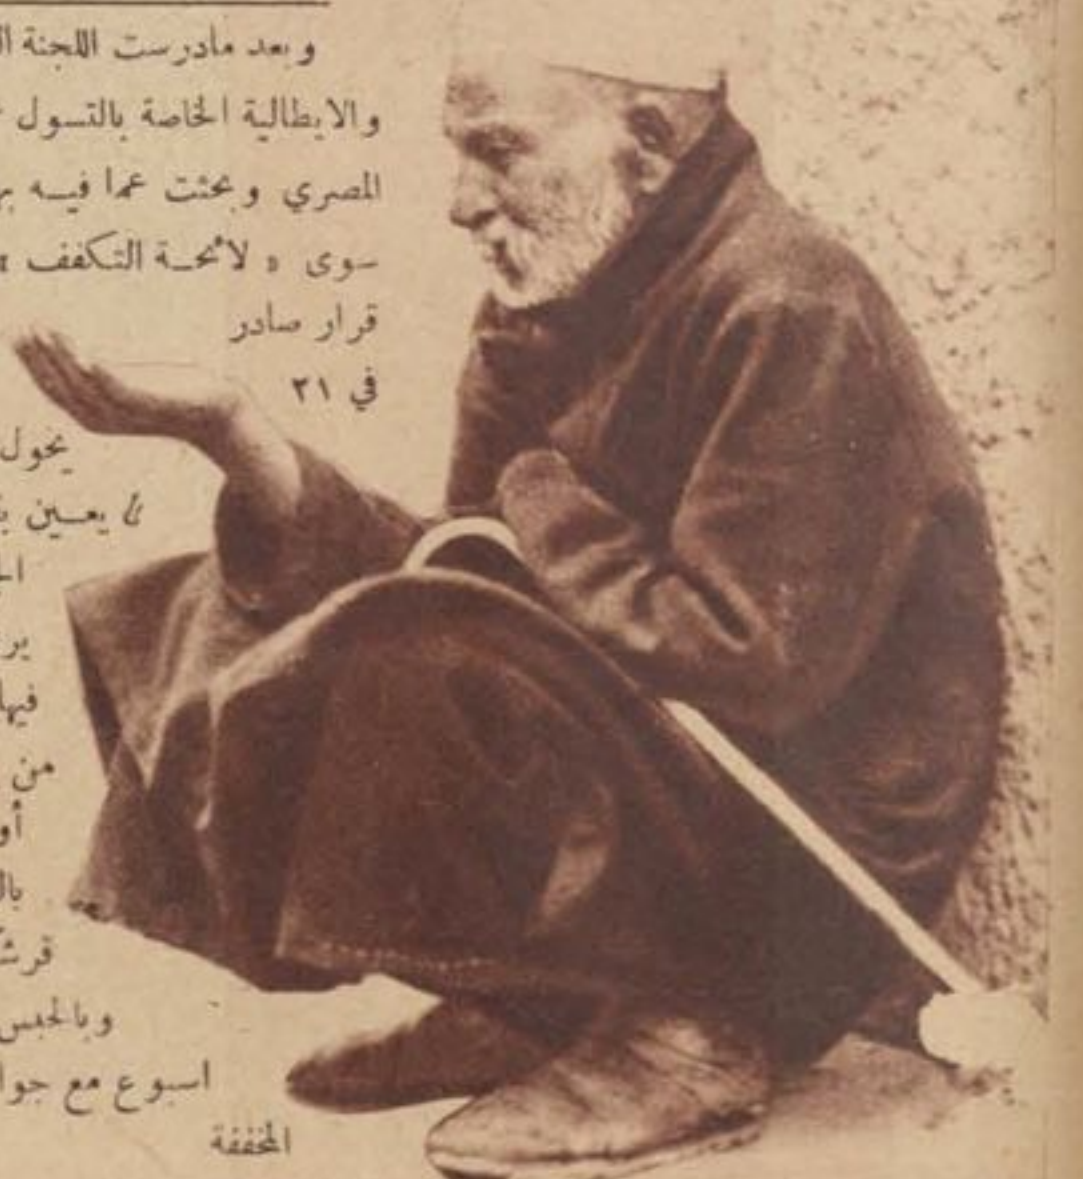 وبعد مادرست اللجنة
والايطالية الخاصة بالتسول
المصري وبحثت عما فيه
سوى « لائحة التكفف »
قرار صادر
في ٢١
يخول
يعين
فيها
من
أو
وبالحبس
اسبوع مع
المخففة